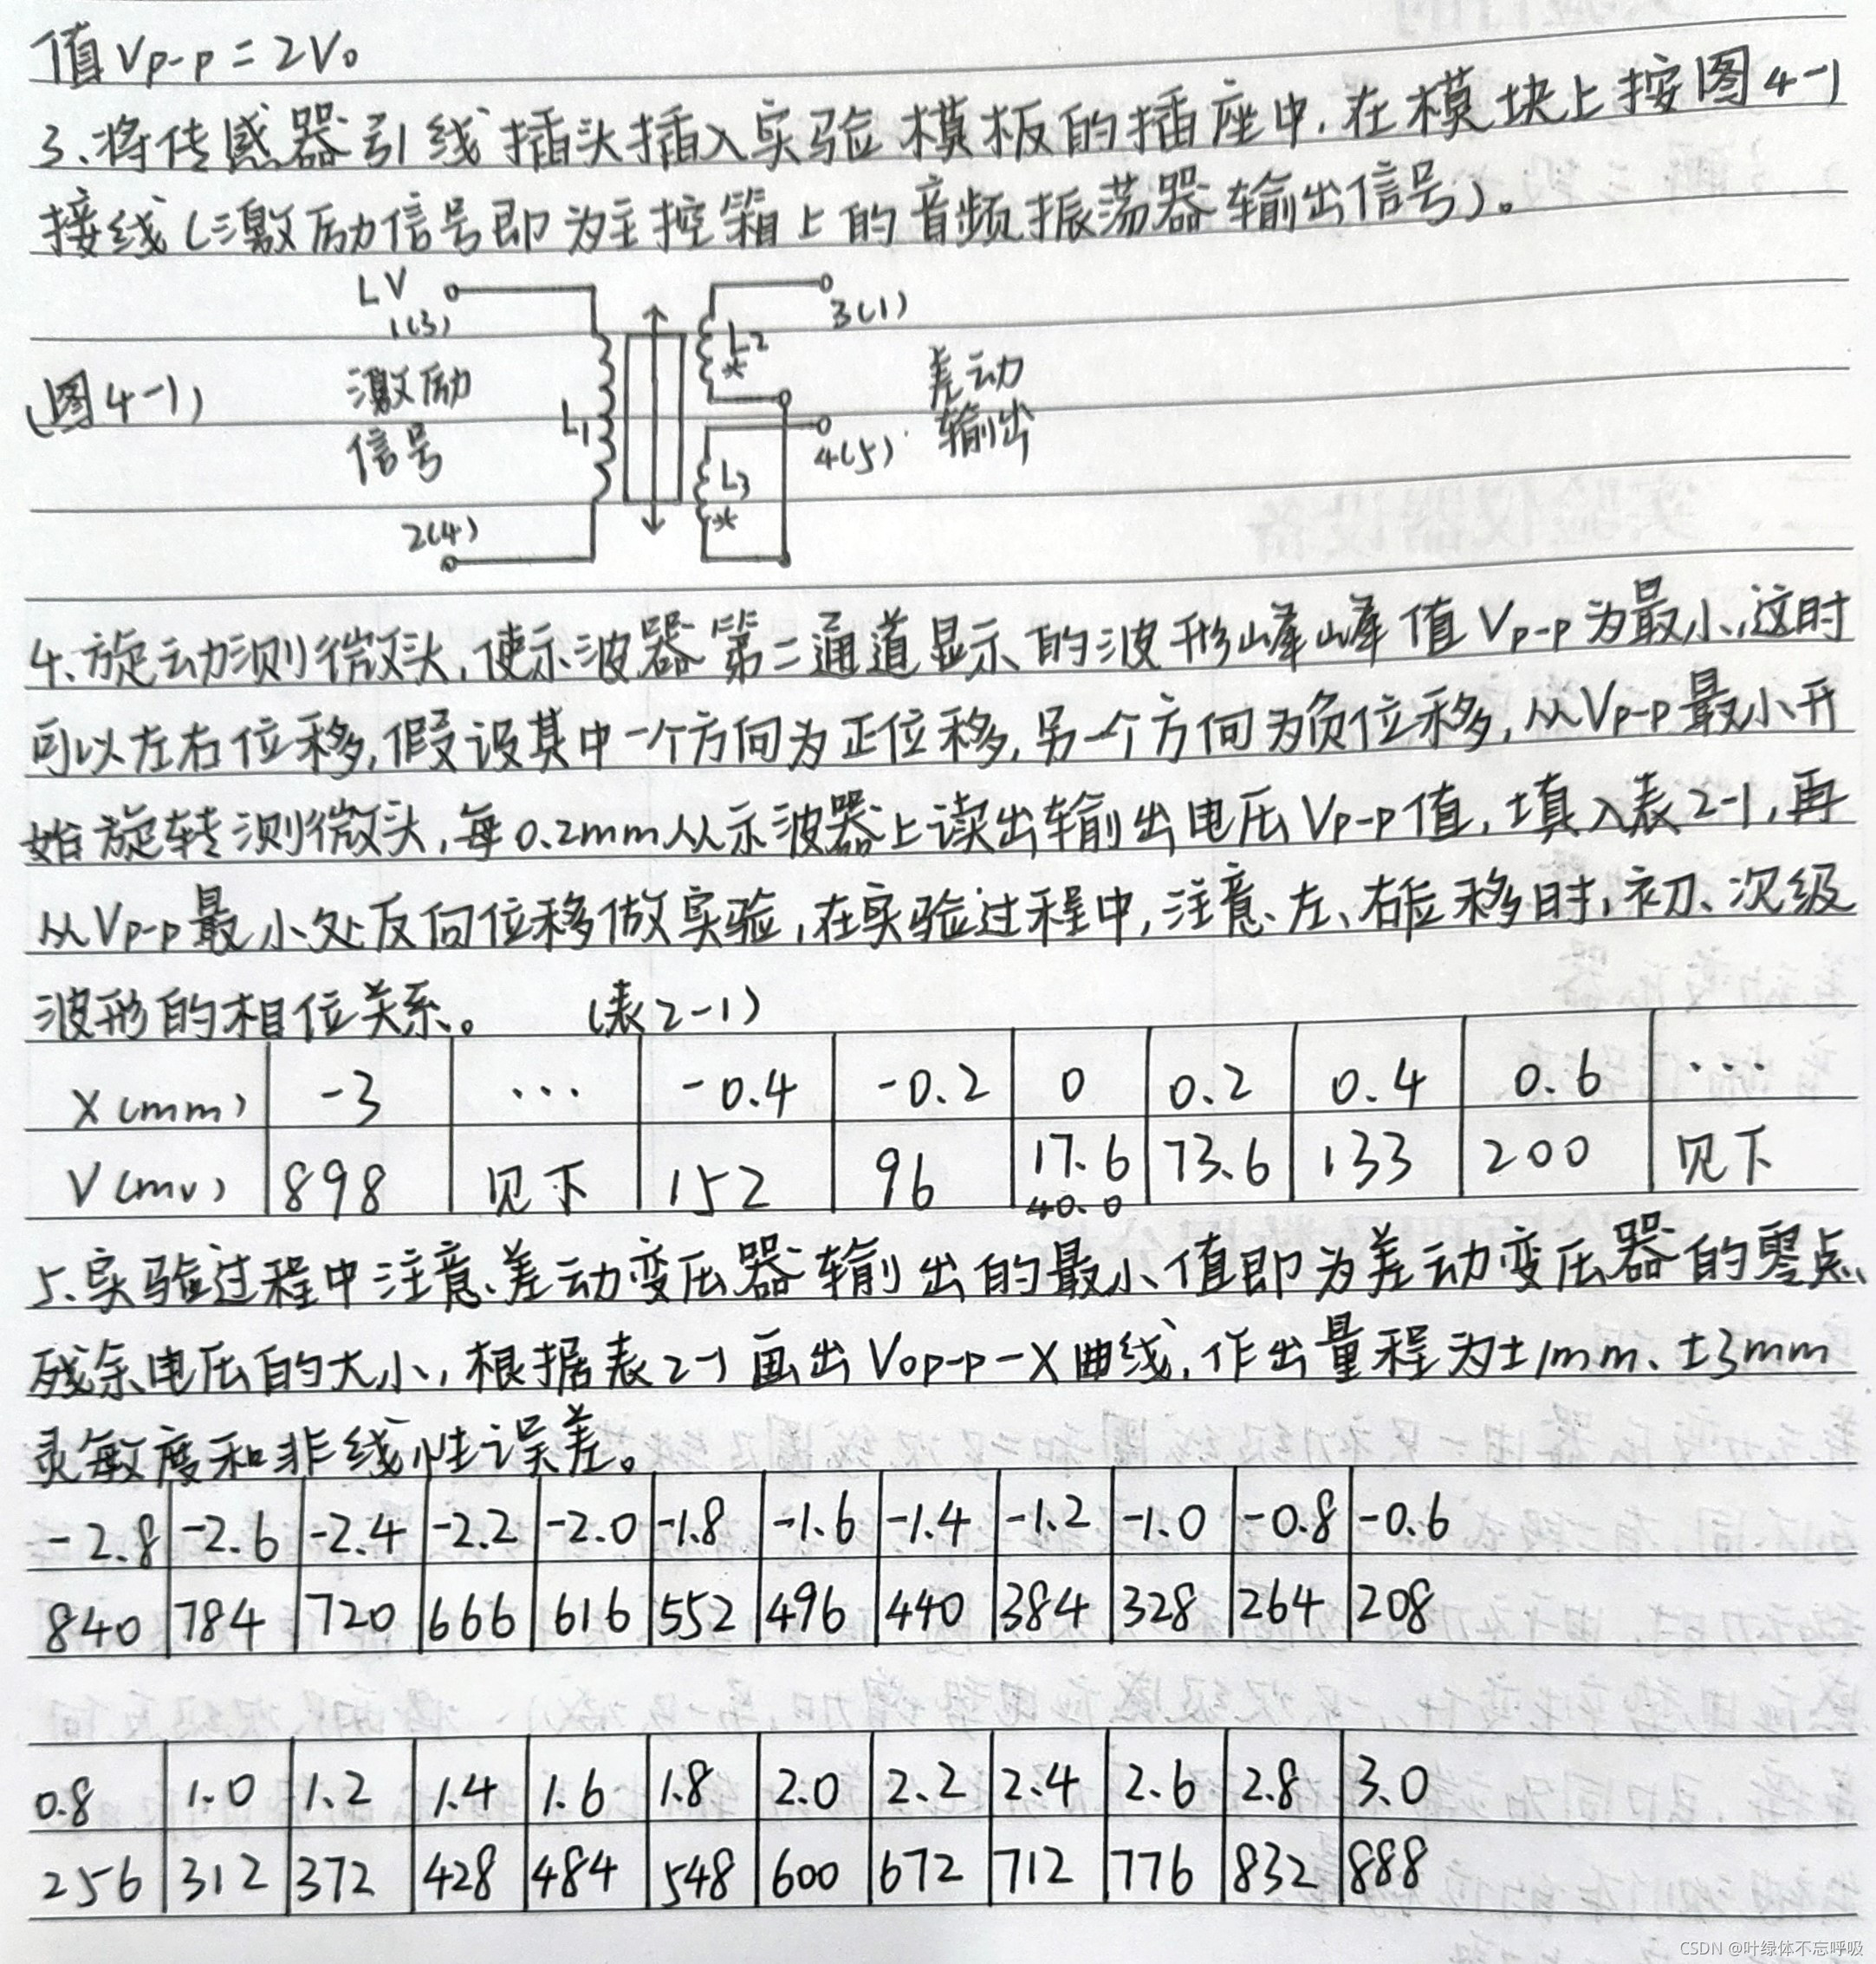 值Vp-p=2V。
3、将传感器引线插头插入实验模板的插座中,在模块上按图4-1
接线(激励信号即为主控箱上的音频振荡器输出信号)。
LV
1(3)
3(1)
L2
*
(图4-1)
激励
信号
L1
差动
输出
4(5)
L3
*
2(4)
4、旋动测微头,使示波器第二通道显示的波形峰峰值Vp-p为最小,这时
可以左右位移,假设其中一个方向为正位移,另一个方向为负位移,从Vp-p最小开
始旋转测微头,每0.2mm从示波器上读出输出电压Vp-p值,填入表2-1,再
从Vp-p最小处反向位移做实验,在实验过程中,注意、左、右位移时,初、次级
波形的相位关系。 (表2-1)
X(mm) -3 ··· -0.4 -0.2 0 0.2 0.4 0.6 ···
V(mv) 898 见下 152 96 17.6 73.6 133 200 见下
40.0
5、实验过程中注意、差动变压器输出的最小值即为差动变压器的零点
残余电压的大小,根据表2-1画出Vop-p-X曲线,作出量程为±1mm、±3mm
灵敏度和非线性误差。
-2.8 -2.6 -2.4 -2.2 -2.0 -1.8 -1.6 -1.4 -1.2 -1.0 -0.8 -0.6
840 784 720 666 616 552 496 440 384 328 264 208
0.8 1.0 1.2 1.4 1.6 1.8 2.0 2.2 2.4 2.6 2.8 3.0
256 312 372 428 484 548 600 672 712 776 832 888
CSDN @叶绿体不忘呼吸